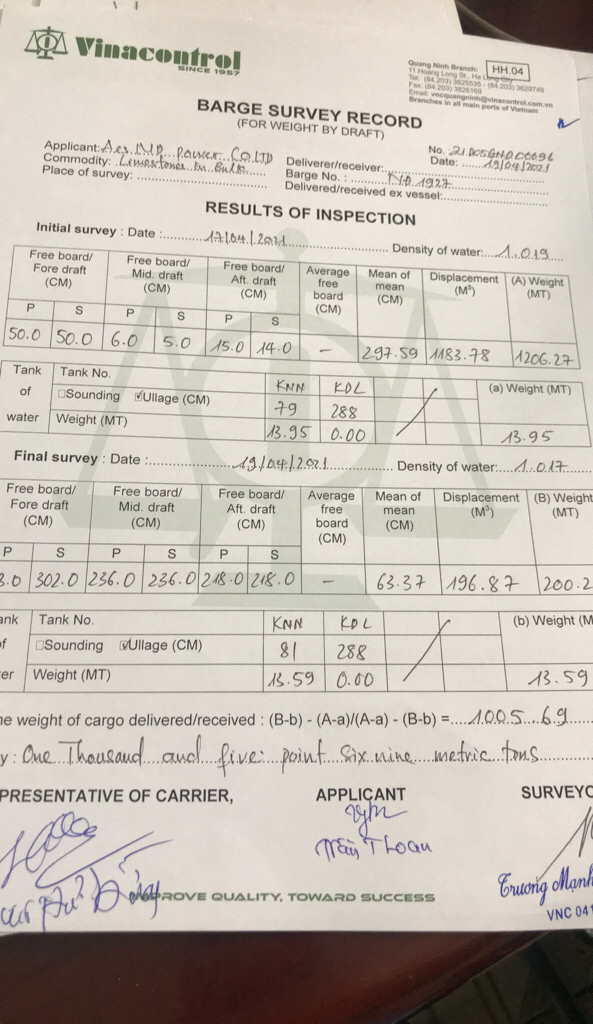 Vinacontrol
SINCE 1957
Quang Ninh Branch:
HH.04
11 Hoang Long St., Ha Long City
Tel: (84.203) 3825535 - (84.203) 3829749
Fax: (84.203) 3826169
Email: vncquangninh@vinacontrol.com.vn
Branches in all main ports of Vietnam
BARGE SURVEY RECORD
(FOR WEIGHT BY DRAFT)
No. 21D05GND00696
Applicant: Aes IMD Power CO LTD
Deliverer/receiver:
Date: 19/04/2021
Commodity: Limestone In Bulk
Barge No.: NĐ 1927
Place of survey:
Delivered/received ex vessel:
RESULTS OF INSPECTION
Initial survey : Date : 17/04/2021 Density of water: 1.019
Free board/ Fore draft (CM) Free board/ Mid. draft (CM) Free board/ Aft. draft (CM) Average free board (CM) Mean of mean (CM) Displacement (M³) (A) Weight (MT)
P S P S P S
50.0 50.0 6.0 5.0 15.0 14.0 – 297.59 1183.78 1206.27
Tank of water Tank No. KNN KDL (a) Weight (MT)
Sounding Ullage (CM) 79 288
Weight (MT) 13.95 0.00 13.95
Final survey : Date : 19/04/2021 Density of water: 1.017
Free board/ Fore draft (CM) Free board/ Mid. draft (CM) Free board/ Aft. draft (CM) Average free board (CM) Mean of mean (CM) Displacement (M³) (B) Weight (MT)
P S P S P S
3.0 302.0 236.0 236.0 218.0 218.0 – 63.37 196.87 200.2
ank of er Tank No. KNN KDL (b) Weight (M
Sounding Ullage (CM) 81 288
Weight (MT) 13.59 0.00 13.59
e weight of cargo delivered/received : (B-b) - (A-a)/(A-a) - (B-b) = 1005.69
y : One Thousand and five point six nine metric tons
PRESENTATIVE OF CARRIER, APPLICANT SURVEYO
Trần Thoan
Trương Mạnh
IMPROVE QUALITY, TOWARD SUCCESS
VNC 041